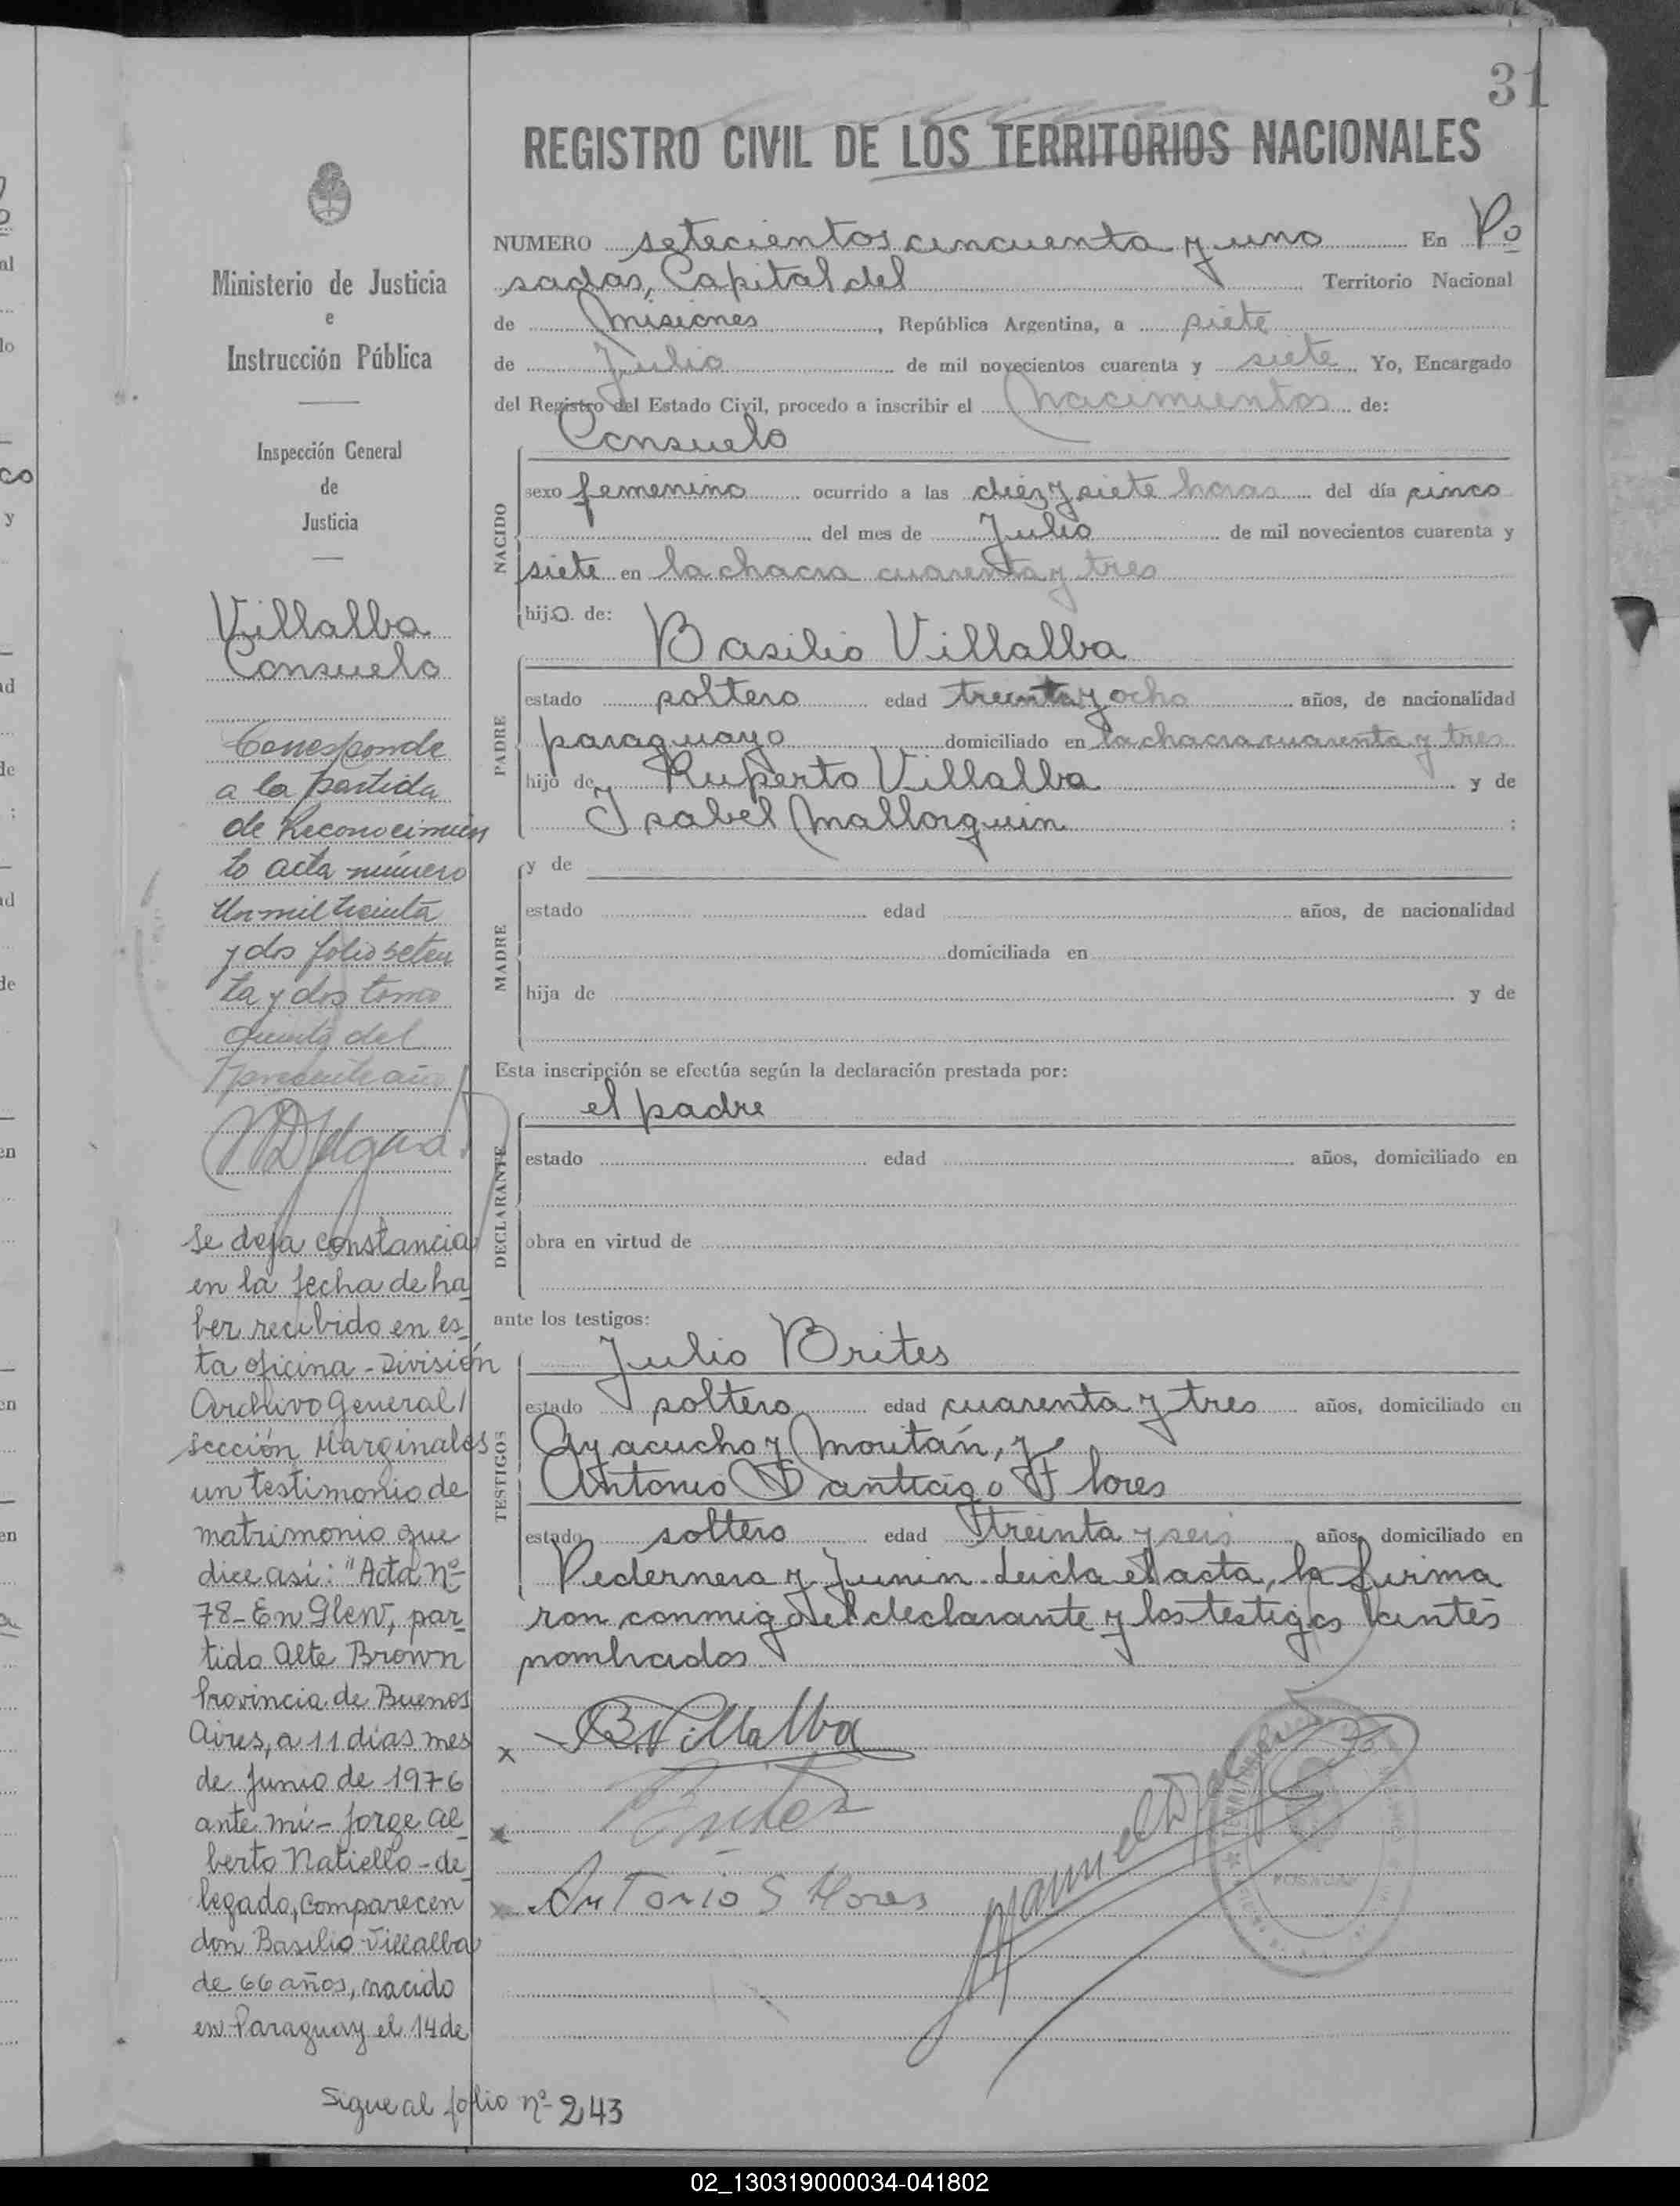 31
REGISTRO CIVIL DE LOS TERRITORIOS NACIONALES
Ministerio de Justicia
e
Instrucción Pública
Inspección General
de
Justicia
Villalba
Consuelo
Corresponde
a la partida
de Reconocimien
to acta número
Un mil treinta
y dos folio seten
ta y dos tomo
quinto del
presente año
Se deja constancia
en la fecha de ha
ber recibido en es
ta oficina - División
Archivo General /
Sección Marginales
un testimonio de
matrimonio que
dice así: "Acta Nº
78- En Glew, par
tido Alte Brown
Provincia de Buenos
Aires, a 11 días mes
de Junio de 1976
ante mí - Jorge Al
berto Natiello - de
legado, comparecen
don Basilio Villalba
de 66 años, nacido
en Paraguay el 14 de
Sigue al folio nº 243
NUMERO setecientos cincuenta y uno En Po
sadas, Capital del Territorio Nacional
de Misiones, República Argentina, a siete
de Julio de mil novecientos cuarenta y siete Yo, Encargado
del Registro del Estado Civil, procedo a inscribir el Nacimientos de:
NACIDO
Consuelo
sexo femenino ocurrido a las diez y siete horas del día cinco
del mes de Julio de mil novecientos cuarenta y
siete en la chacra cuarenta y tres
hijo. de:
PADRE
Basilio Villalba
estado soltero edad treinta y ocho años, de nacionalidad
paraguayo domiciliado en la chacra cuarenta y tres
hijo de Ruperto Villalba y de
Isabel Mallorquin ;
MADRE
y de
estado edad años, de nacionalidad
domiciliada en
hija de y de
Esta inscripción se efectúa según la declaración prestada por:
DECLARANTE
el padre
estado edad años, domiciliado en
obra en virtud de
ante los testigos:
TESTIGOS
Julio Brites
estado soltero edad cuarenta y tres años, domiciliado en
Ayacucho y Moután, y
Antonio Santiago Flores
estado soltero edad treinta y seis años, domiciliado en
Pedernera y Junin. Leida el acta, la firma
ron conmigo el declarante y los testigos
nombrados
x B. Villalba
x Brites
x Antonio S Flores
POSADAS
02_130319000034-041802